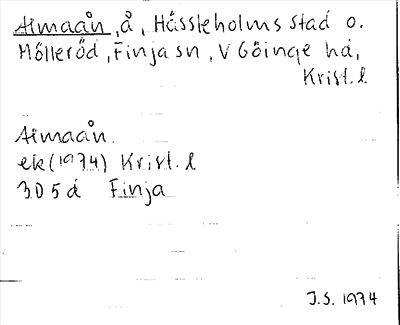 Almaån, å, Hässleholms stad o.
Mölleröd, Finja sn, V Göinge hd,
Krist. l.
Almaån.
ek (1974) Krist. l
3D5d Finja
J.S. 1974